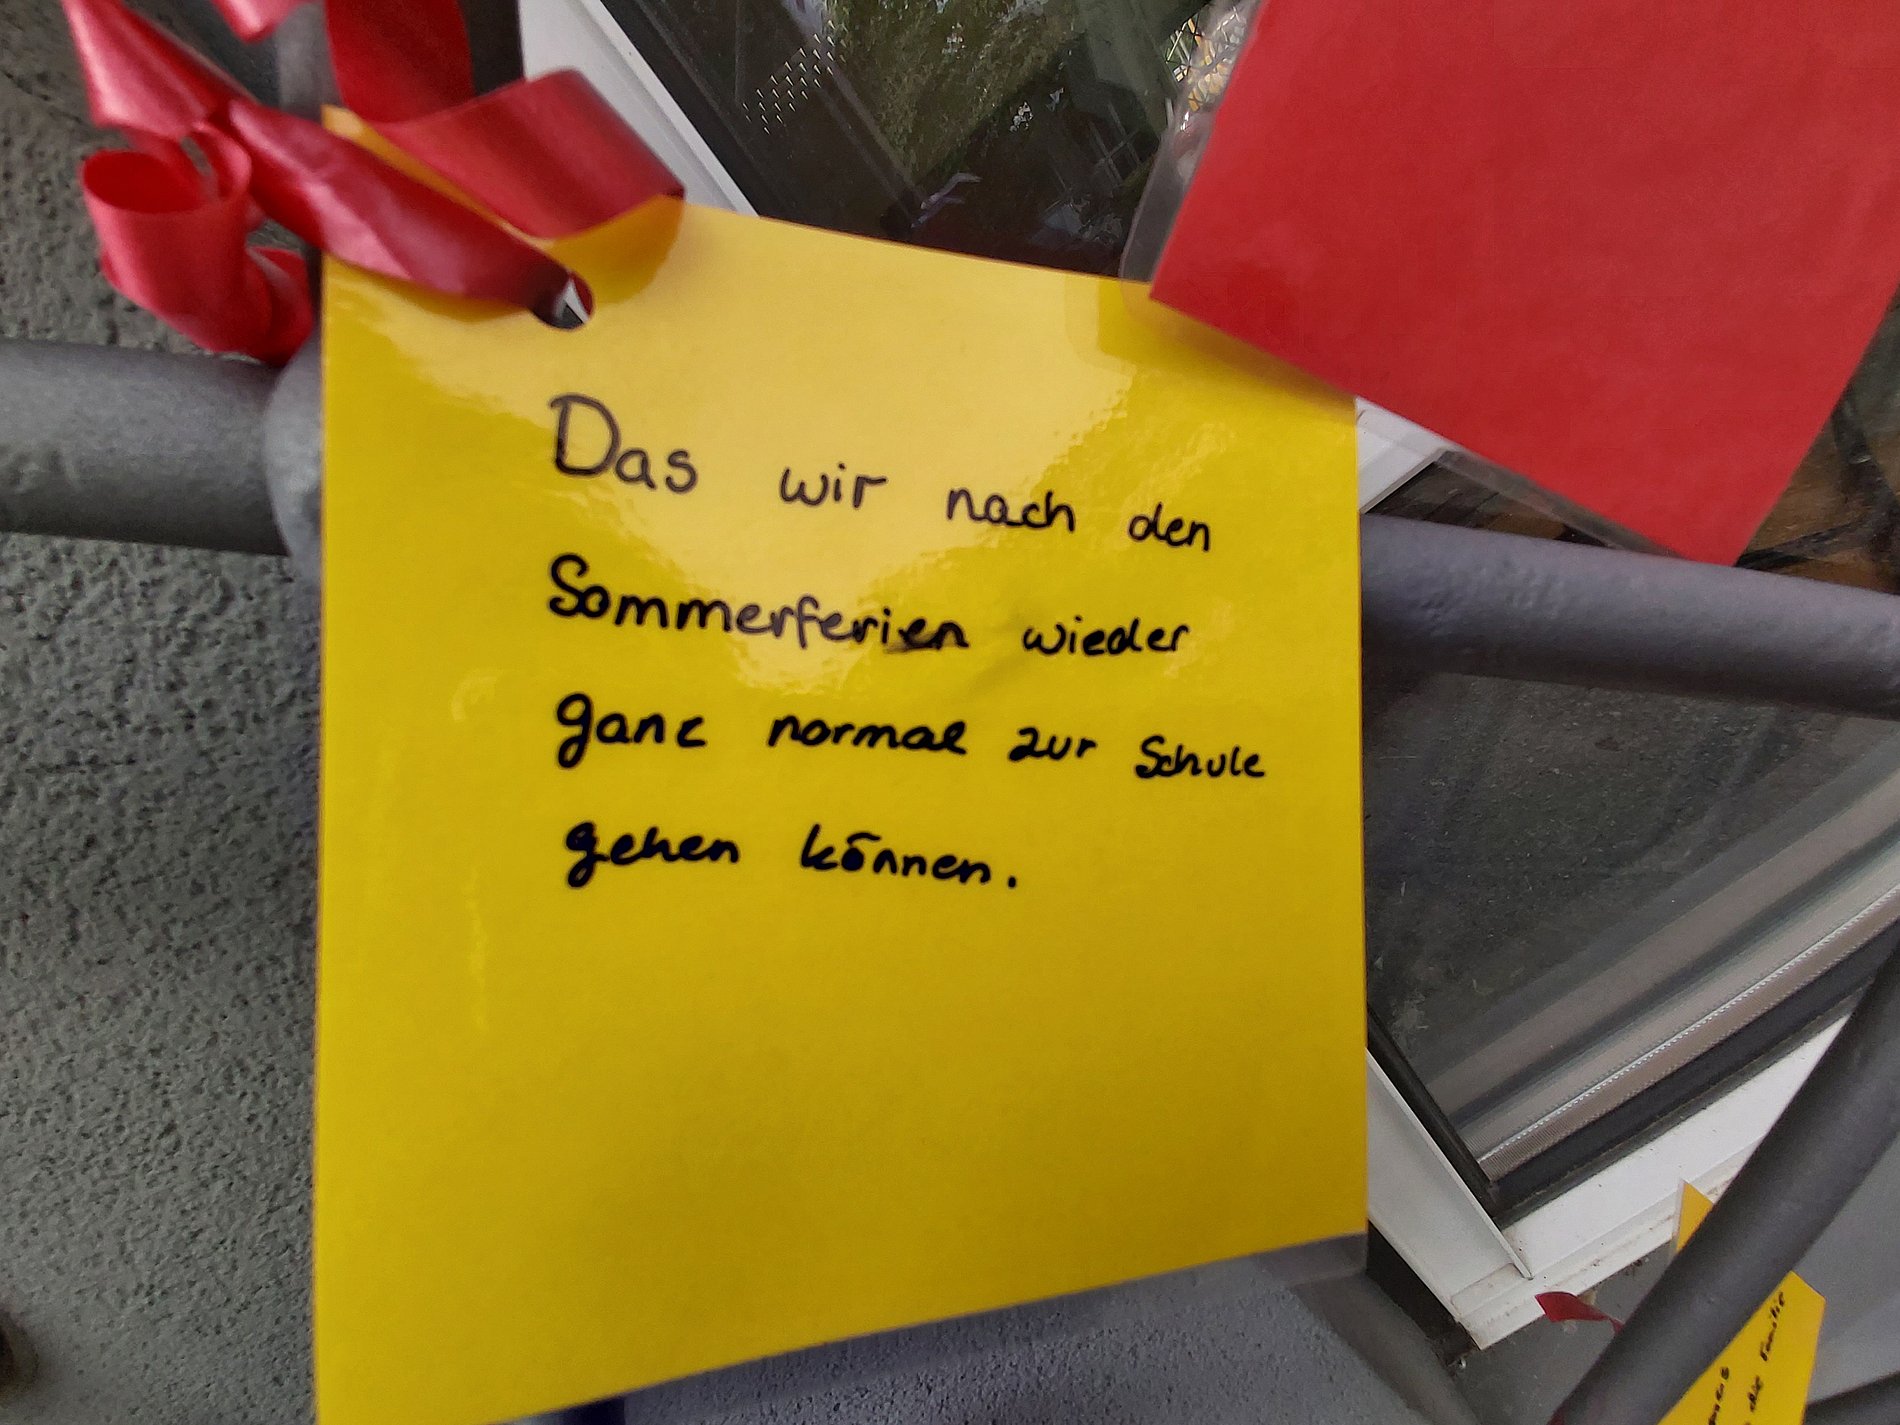 Das wir nach den
Sommerferien wieder
ganz normal zur Schule
gehen können.
die Familie